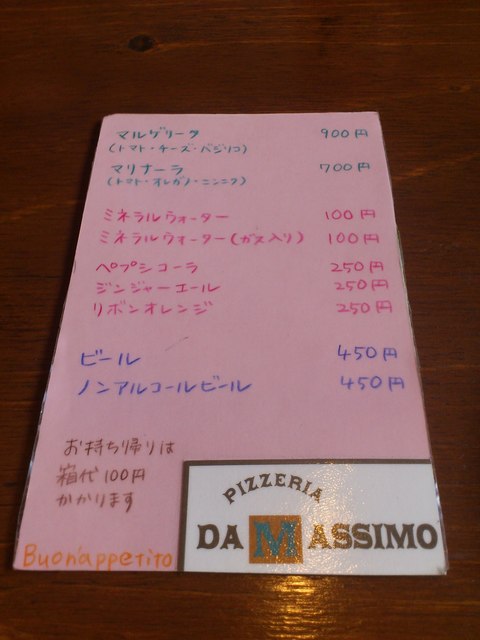 マルゲリータ 900円
(トマト・チーズ・バジリコ)
マリナーラ 700円
(トマト・オレガノ・ニンニク)
ミネラルウォーター 100円
ミネラルウォーター(ガス入り) 100円
ペプシコーラ 250円
ジンジャーエール 250円
リボンオレンジ 250円
ビール 450円
ノンアルコールビール 450円
お持ち帰りは
箱代100円
かかります
Buon'appetito
PIZZERIA
DA MASSIMO